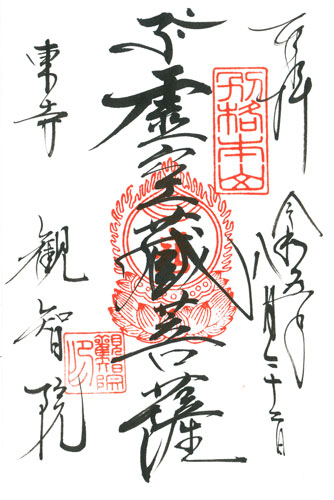 奉拝
令和五年
八月二十二日
別格本山
虚空蔵菩薩
東寺
観智院